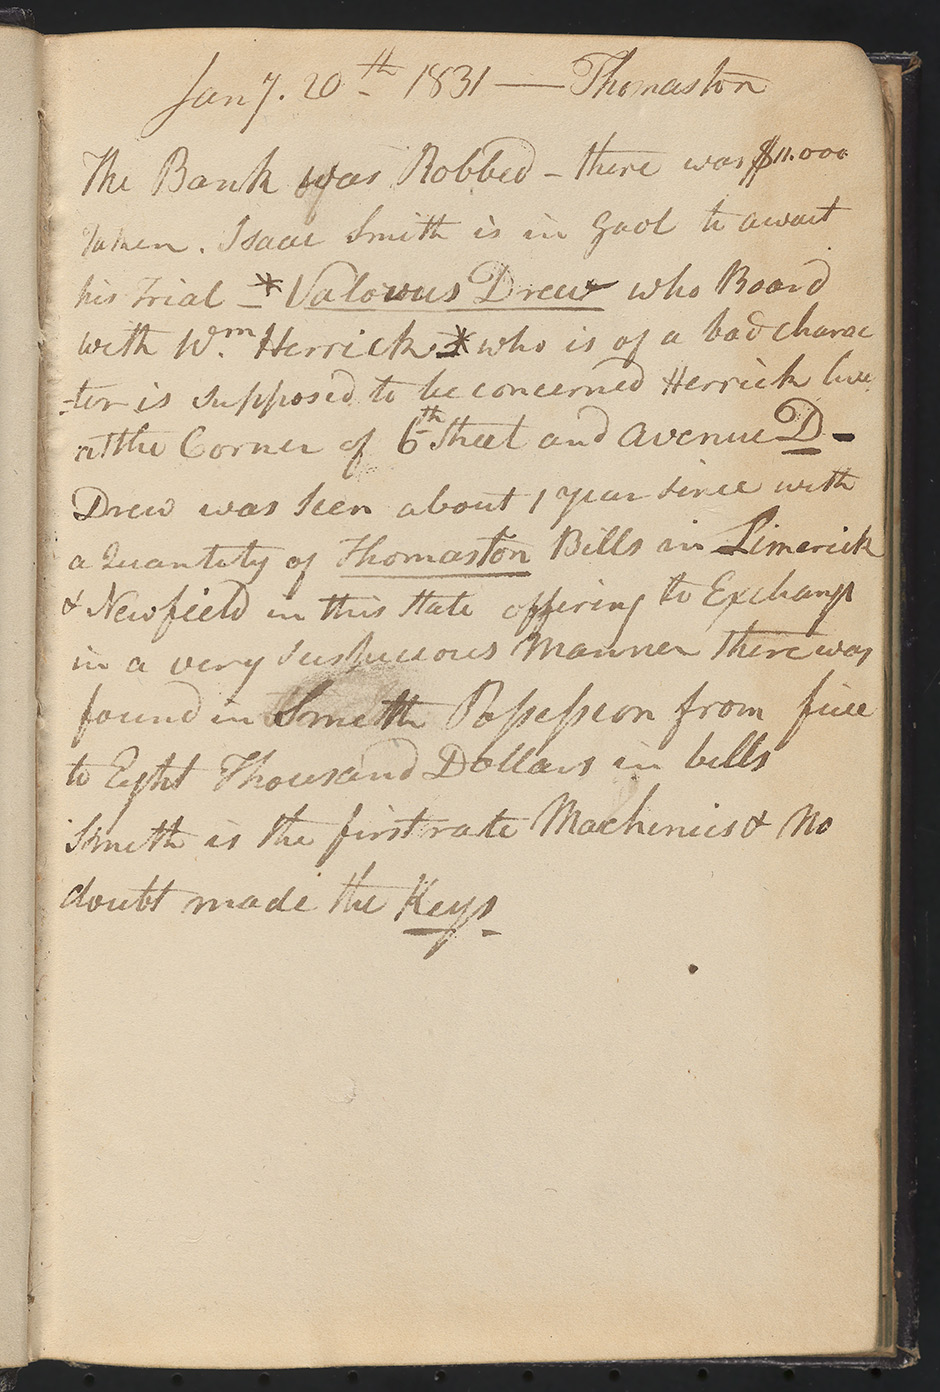 Jany. 20th 1831 — Thomaston
The Bank was Robbed – there was $11.000
taken. Isaac Smith is in Gaol to await
his Trial – * Valorous Drew who Board
with Wm. Herrick * who is of a bad charac
-ter is supposed to be concerned Herrick live
at the Corner of 6th Street and Avenue D –
Drew was seen about 1 year since with
a Quantity of Thomaston Bills in Limerick
& Newfield in this State offering to Exchange
in a very suspicious Manner there was
found in Smith Possession from five
to Eight Thousand Dollars in bills
Smith is the first rate Machinics & No
doubt made the Keys